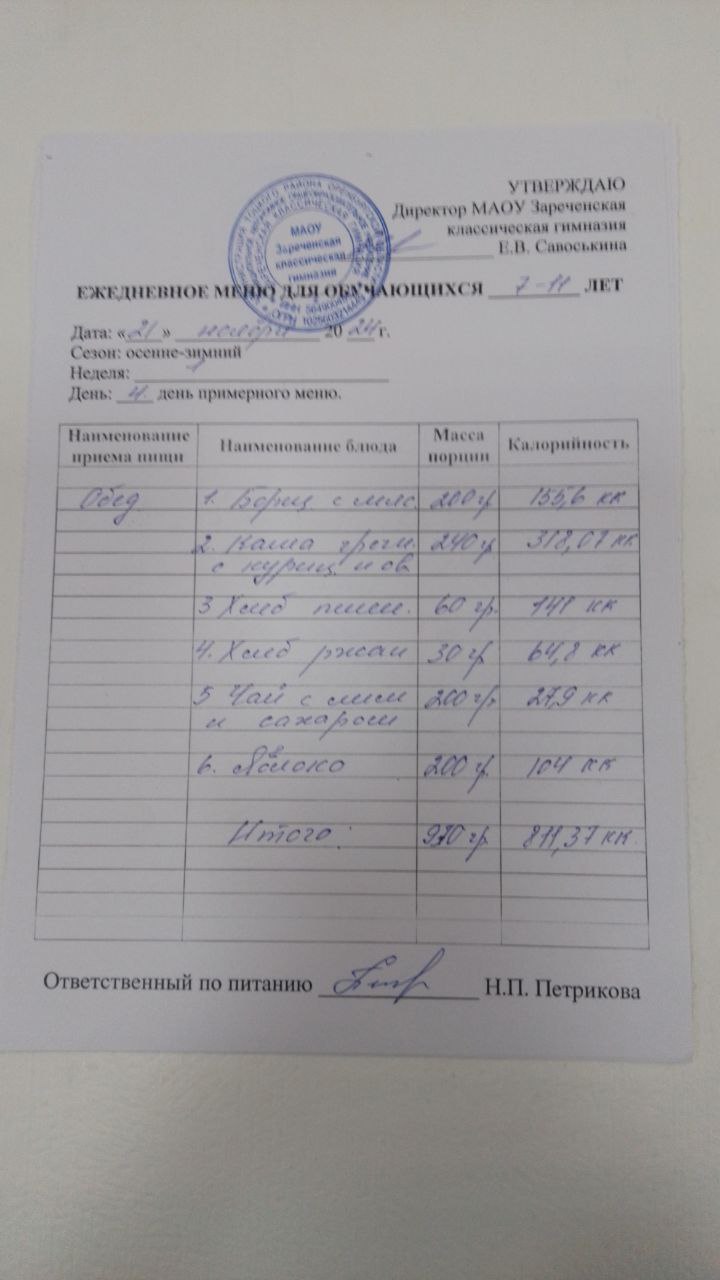 УТВЕРЖДАЮ
Директор МАОУ Зареченская
классическая гимназия
Е.В. Савоськина
МАОУ
Зареченская
классическая
гимназия
ЕЖЕДНЕВНОЕ МЕНЮ ДЛЯ ОБУЧАЮЩИХСЯ 7-11 ЛЕТ
Дата: «21» ноября 2024 г.
Сезон: осенне-зимний
Неделя:
День: 4. день примерного меню.
Наименование приема пищи Наименование блюда Масса порции Калорийность
Обед 1. Борщ с мяс. 200 гр 155,6 кк
2. Каша греч. 240 гр 318,07 кк
с куриц и ов
3 Хлеб пшен. 60 гр. 141 кк
4. Хлеб ржан 30 гр 64,8 кк
5 Чай с лим 200 гр. 27,9 кк
и сахаром
6. Яблоко 200 гр. 104 кк
Итого: 930 гр 811,37 кк.
Ответственный по питанию Н.П. Петрикова